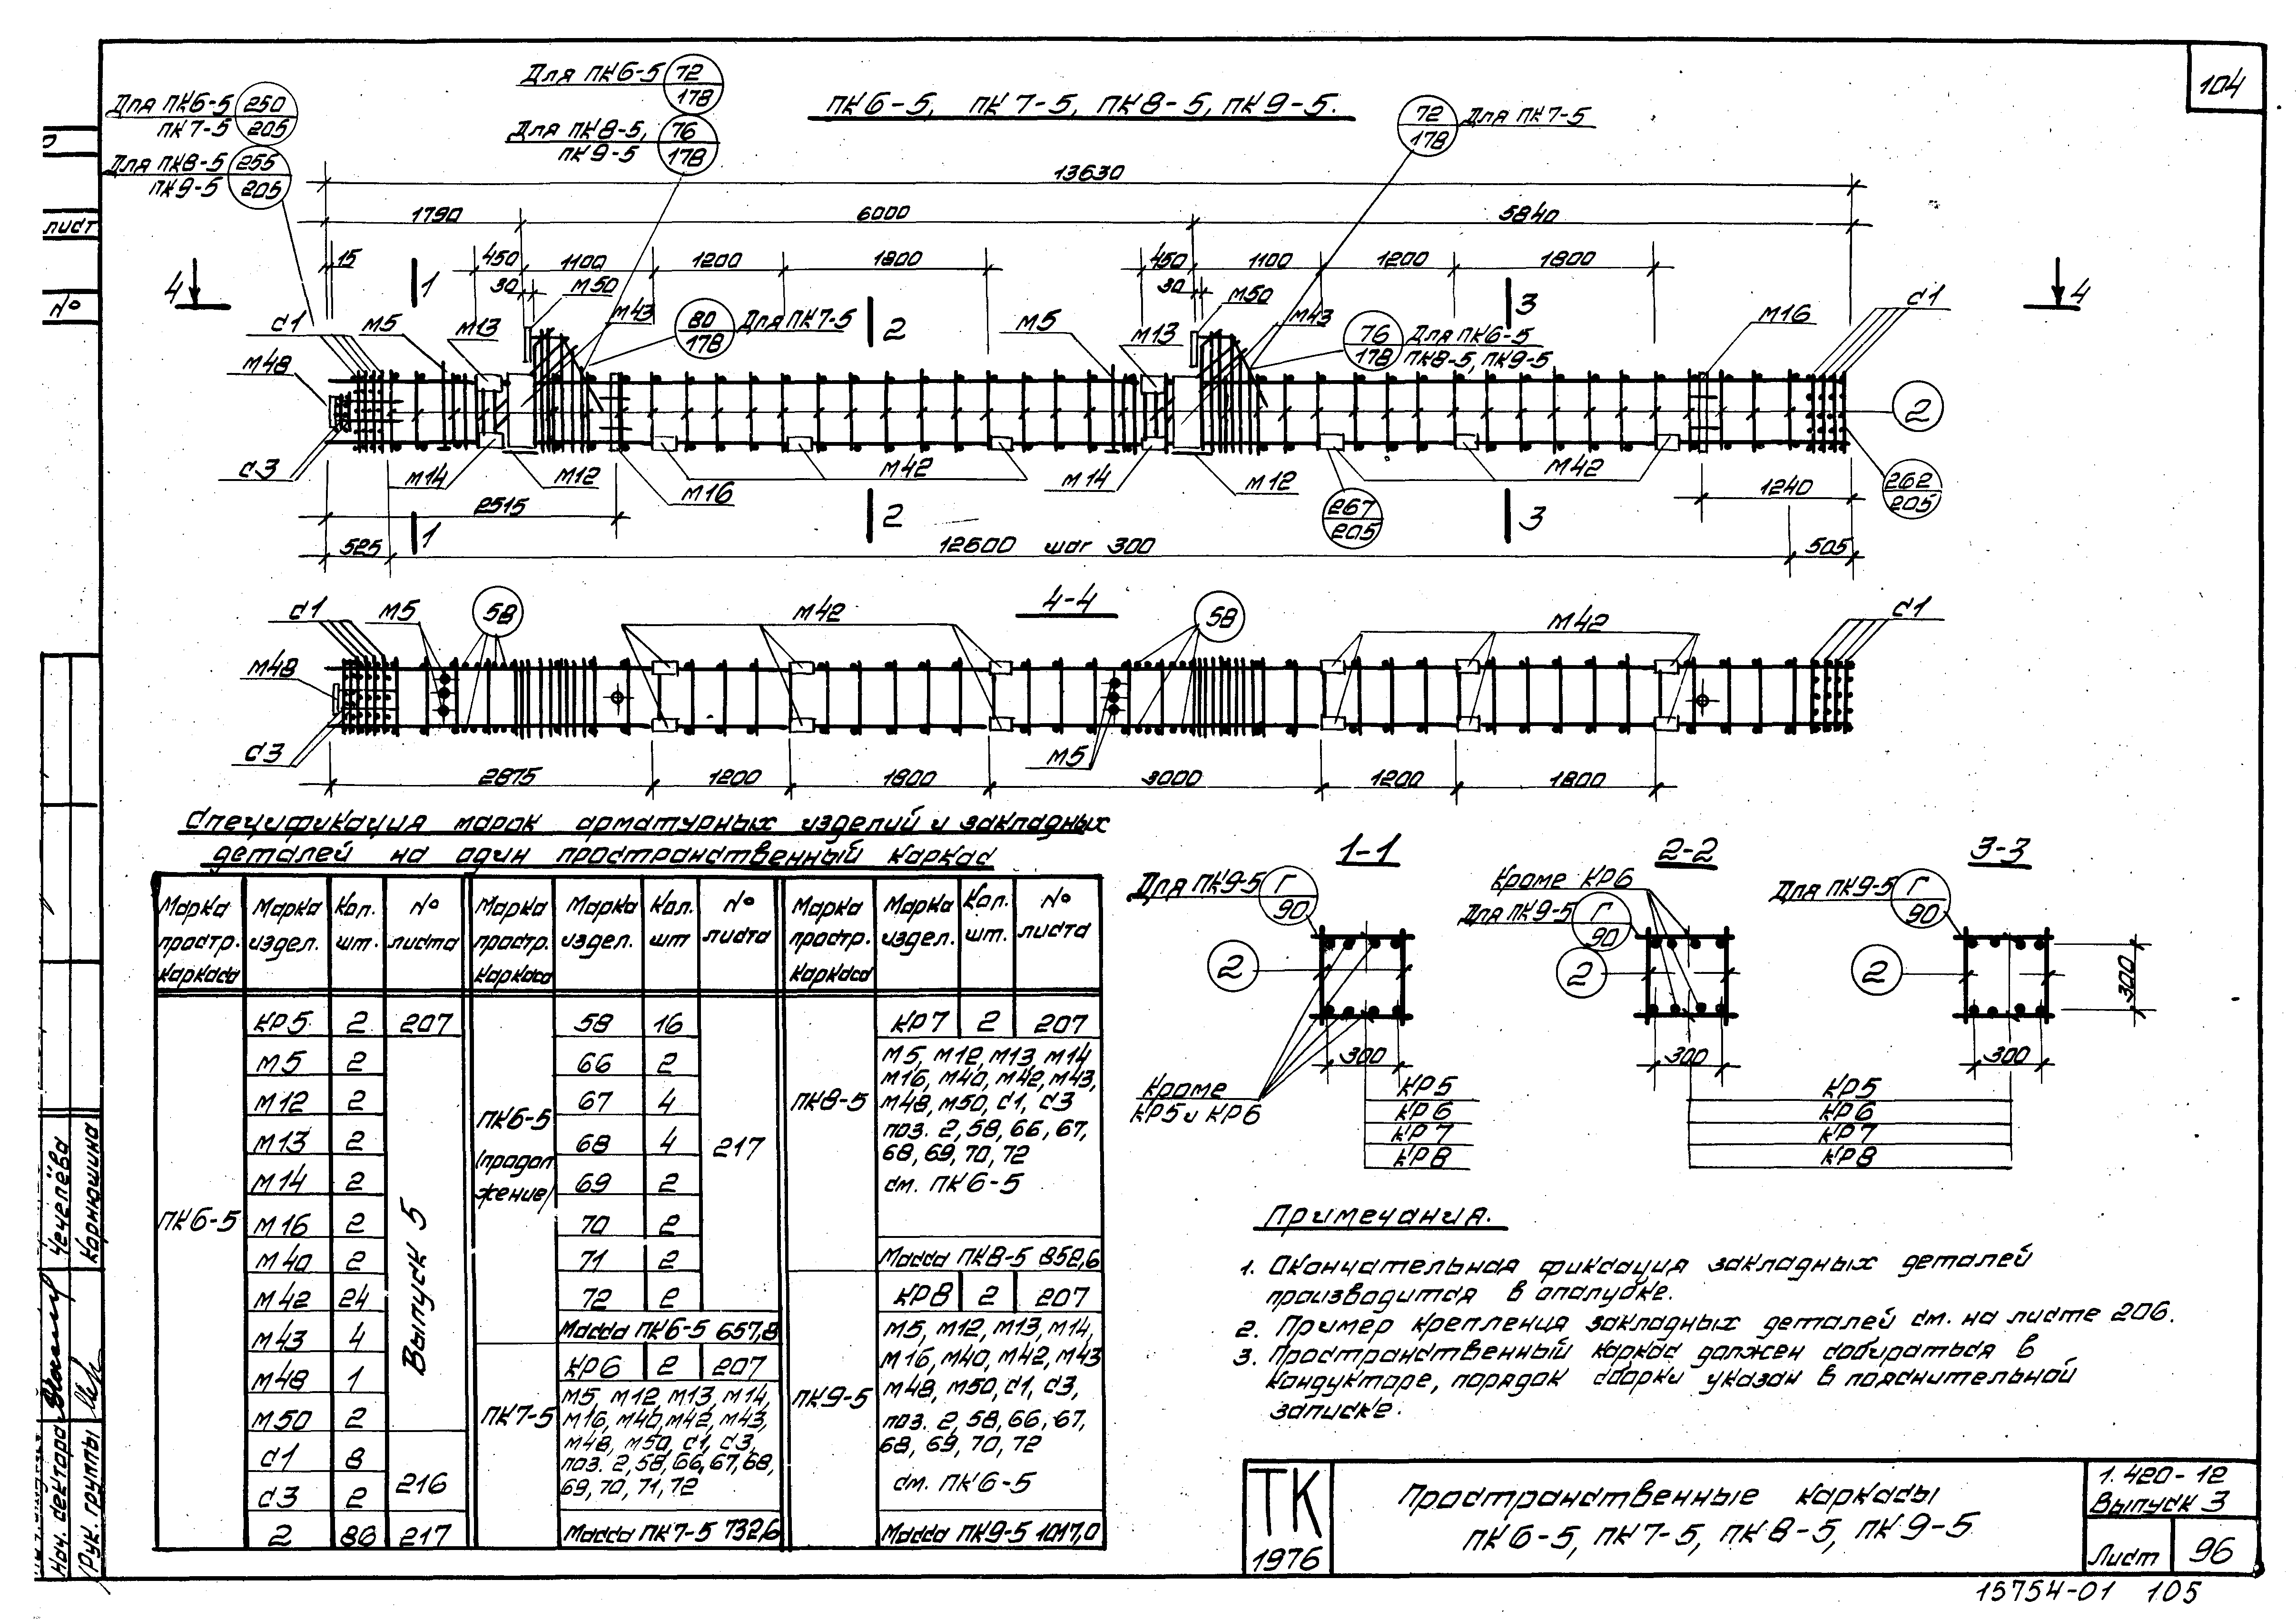 104
ПК6-5, ПК7-5, ПК8-5, ПК9-5.
Для ПК6-5 72/178
Для ПК8-5, ПК9-5 76/178
Для ПК6-5 ПК7-5 250/205
Для ПК8-5 ПК9-5 255/205
72/178 Для ПК7-5
13630
1790 6000 5840
15 450 1100 1200 1800 450 1100 1200 1800
30 М50 30 М50
4 1 2 3 4
С1 М5 М13 М43 80/178 Для ПК7-5 М5 М13 М43 76/178 Для ПК6-5 ПК8-5, ПК9-5 М16 С1
М48
2
С3 М14 М12 М16 М42 М14 М12 М42 1240 262/205
267/205
2515
1 2 3
525 12600 шаг 300 505
4-4
С1 М5 58 М42 58 М42 С1
М48
С3 М5
2875 1200 1800 3000 1200 1800
Спецификация марок арматурных изделий и закладных
деталей на один пространственный каркас
Марка простр. каркаса Марка издел. Кол. шт. № листа Марка простр. каркаса Марка издел. Кол. шт № листа Марка простр. каркаса Марка издел. Кол. шт. № листа
ПК6-5
КР5 2 207
М5 2
М12 2
М13 2
М14 2
М16 2
М40 2
М42 24
М43 4
М48 1
М50 2
Выпуск 5
С1 8
С3 2
216
2 86 217
ПК6-5
(продол
жение)
58 16
66 2
67 4
68 4
69 2
70 2
71 2
72 2
217
Масса ПК6-5 657,8
ПК7-5
КР6 2 207
М5, М12, М13, М14,
М16, М40, М42, М43,
М48, М50, С1, С3,
поз. 2,58,66,67,68,
69, 70, 71, 72
Масса ПК7-5 732,6
ПК8-5
КР7 2 207
М5, М12, М13, М14
М16, М40, М42, М43,
М48, М50, С1, С3
поз. 2, 58, 66, 67,
68, 69, 70, 72
см. ПК6-5
Масса ПК8-5 852,6
ПК9-5
КР8 2 207
М5, М12, М13, М14,
М16, М40, М42, М43
М48, М50, С1, С3,
поз. 2, 58, 66, 67,
68, 69, 70, 72
см. ПК6-5
Масса ПК9-5 1017,0
1-1
Для ПК9-5 Г/90
2
300
Кроме
КР5 и КР6
КР5
КР6
КР7
КР8
2-2
Кроме КР6
Для ПК9-5 Г/90
2
300
3-3
Для ПК9-5 Г/90
2
300
300
КР5
КР6
КР7
КР8
Примечания.
1. Окончательная фиксация закладных деталей
производится в опалубке.
2. Пример крепления закладных деталей см. на листе 206.
3. Пространственный каркас должен собираться в
кондукторе, порядок сборки указан в пояснительной
записке.
ТК
1976
Пространственные каркасы
ПК6-5, ПК7-5, ПК8-5, ПК9-5
1.420-12
Выпуск 3
Лист 96
15754-01 105
лист
№
Нач. сектора Чечелёва
Рук. группы Карнюшина